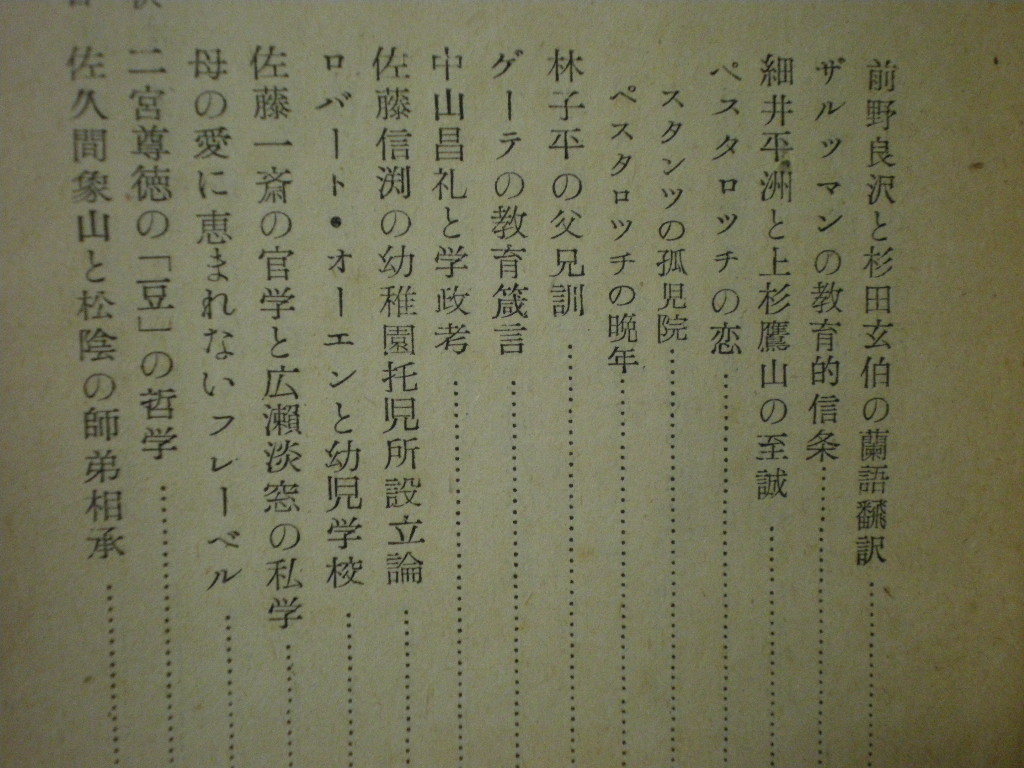 前野良沢と杉田玄伯の蘭語翻訳……
ザルツマンの教育的信条……
細井平洲と上杉鷹山の至誠……
ペスタロツチの恋……
スタンツの孤児院……
ペスタロツチの晩年……
林子平の父兄訓……
ゲーテの教育箴言……
中山昌礼と学政考……
佐藤信渕の幼稚園托児所設立論……
ロバート・オーエンと幼児学校……
佐藤一斎の官学と広瀬淡窓の私学……
母の愛に恵まれないフレーベル……
二宮尊徳の「豆」の哲学……
佐久間象山と松陰の師弟相承……